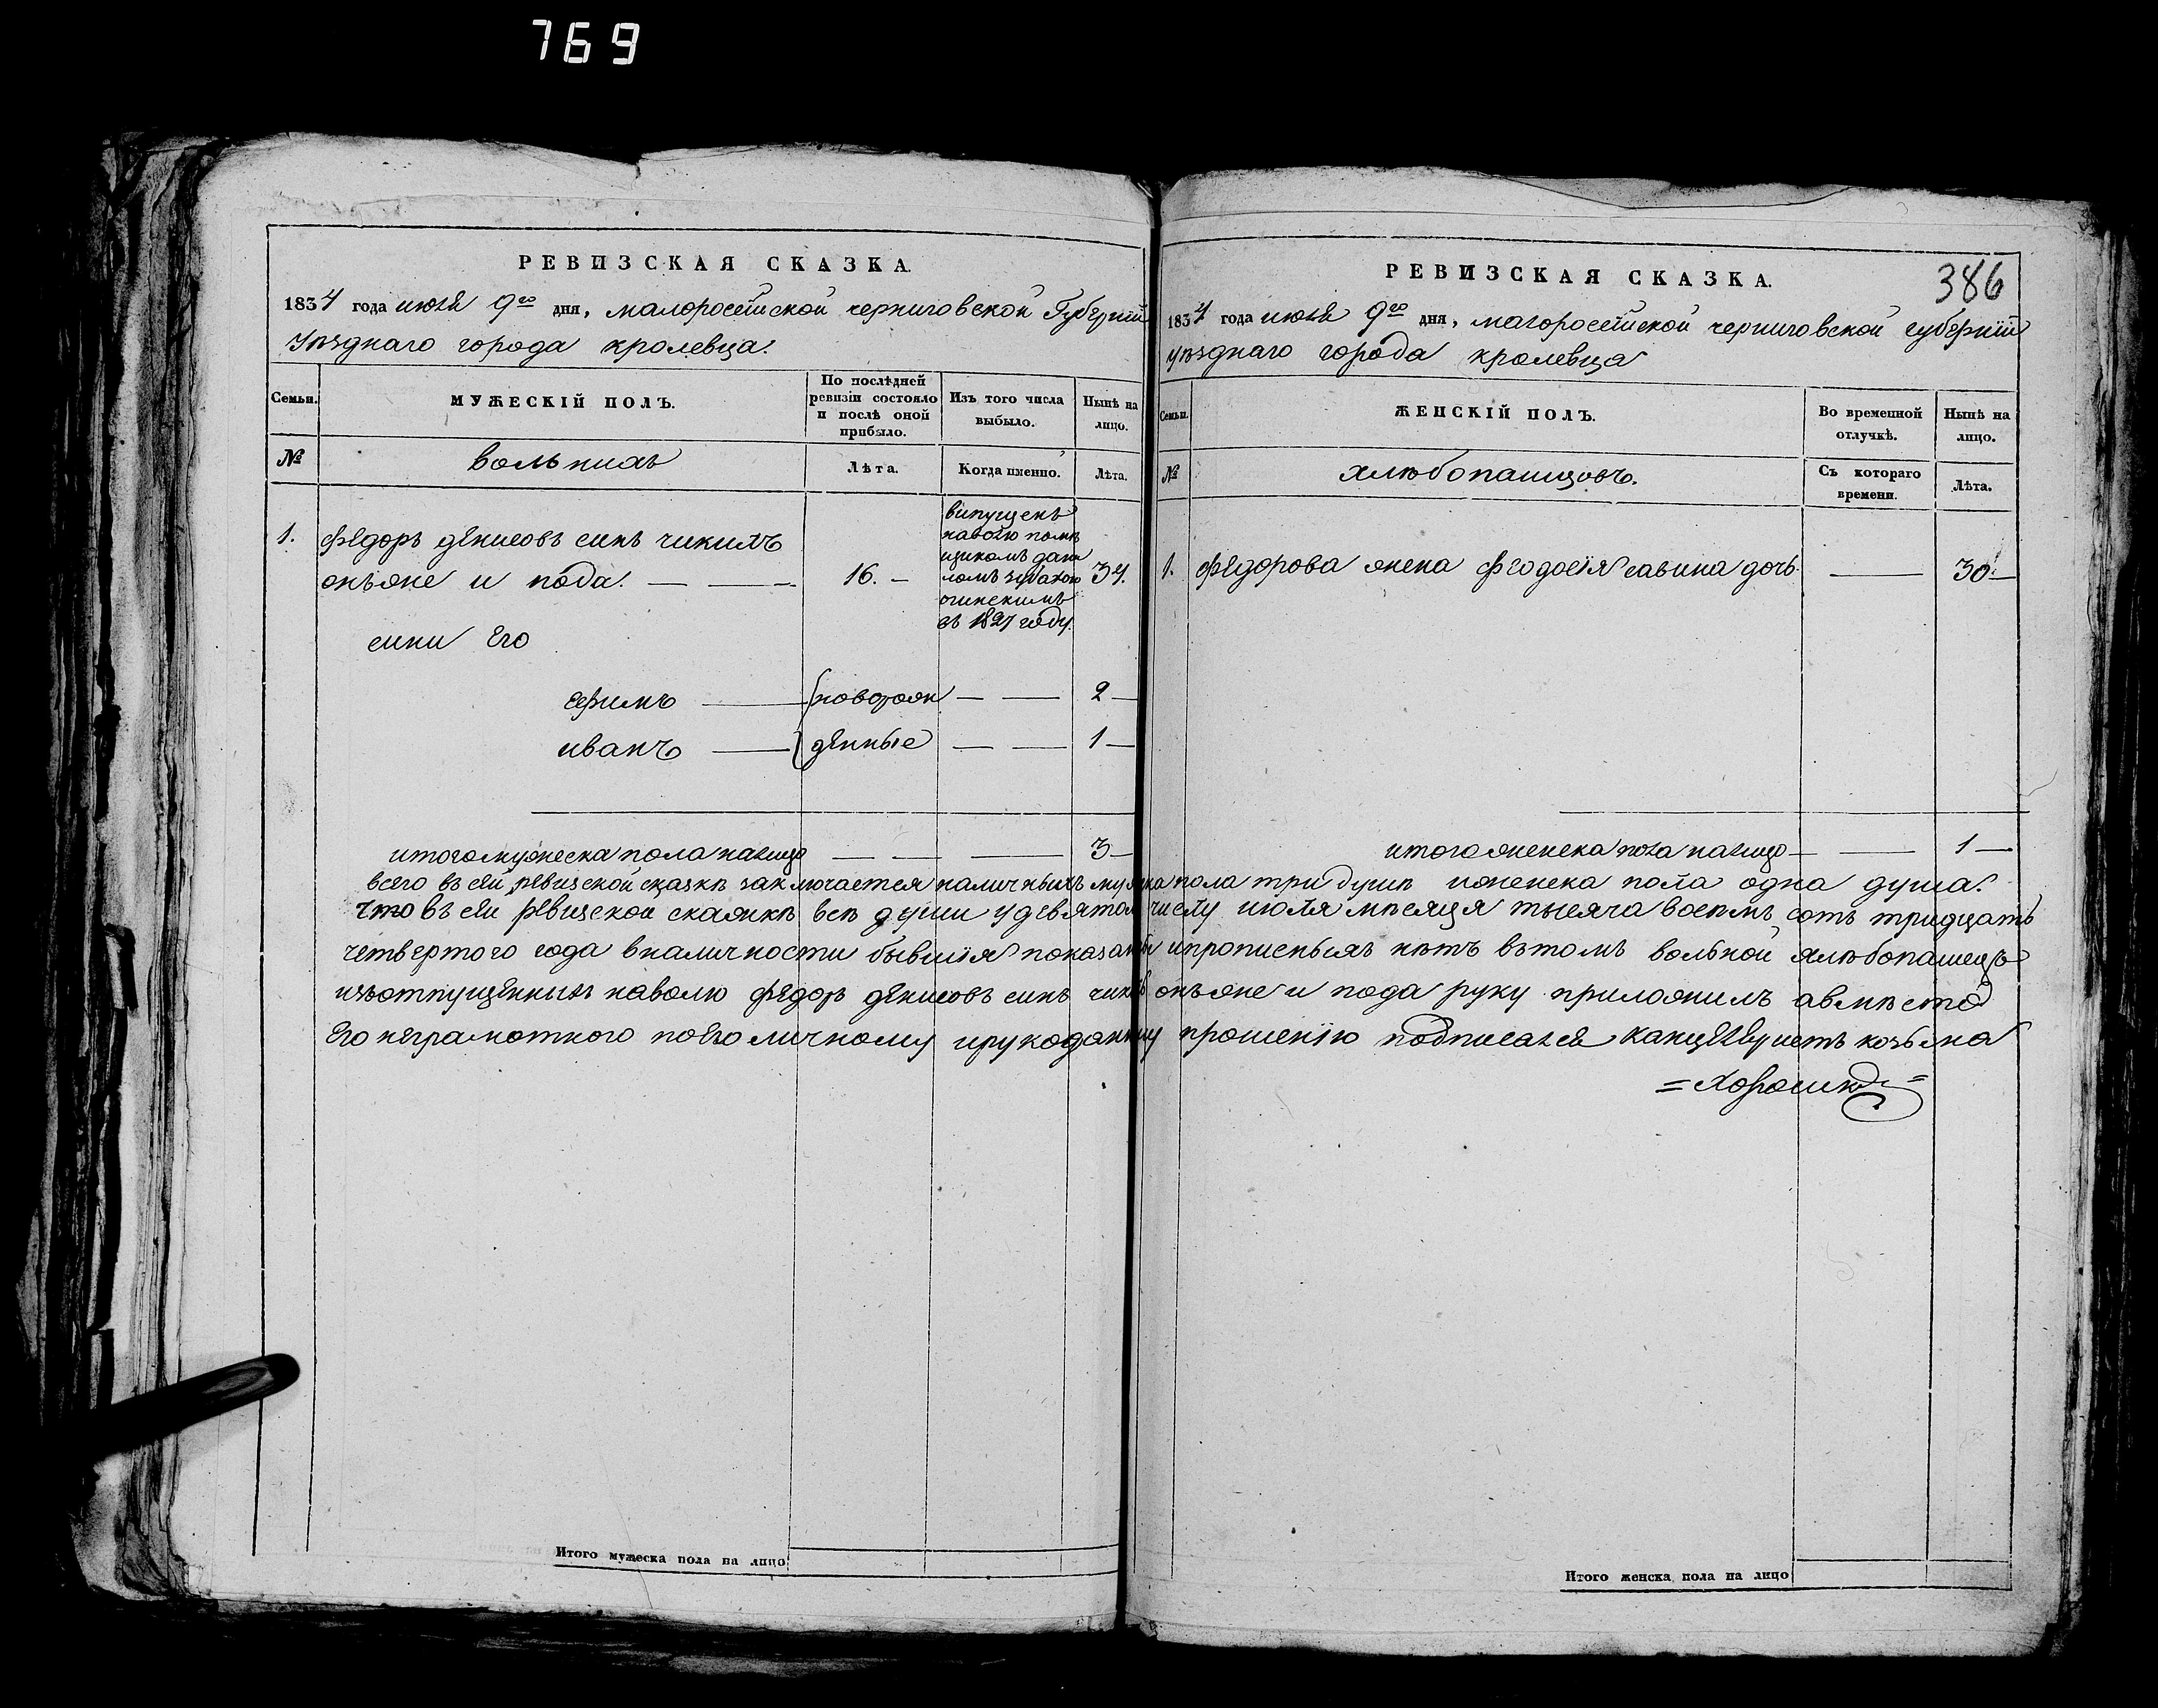 769
РЕВИЗСКАЯ СКАЗКА.
1834 года июля 9го дня, малоросѣйской черниговской Губернїи
уѣзднаго города кролевца.
Семьи.
МУЖЕСКІЙ ПОЛЪ.
По послѣдней
ревизіи состояло
и послѣ оной
прибыло.
Изъ того числа
выбыло.
Нынѣ на
лицо.
№
вольнихъ
Лѣта.
Когда именно.
Лѣта.
випущенъ
наволю помѣ
щикомъ дани
ломъ
огинскимъ
въ 1827 году.
1. Федоръ денисовъ синъ чикилъ
онъже и пода. — — 16. — 34.
сини Его
ефимъ — новорож — — 2 —
иванъ — денные — — 1 —
итого мужеска пола налицо — — — 3 —
Итого мужеска пола на лицо
386
РЕВИЗСКАЯ СКАЗКА.
1834 года июля 9го дня, малоросѣйской черниговской губернїи
уѣзднаго города кролевца
Семьи.
ЖЕНСКІЙ ПОЛЪ.
Во временной
отлучкѣ.
Нынѣ на
лицо.
№
хлѣбопашцовъ.
Съ котораго
времени.
Лѣта.
1. Федорова жена Феодосїя савина дочь — 30. —
итого женска пола налицо — — 1 —
всего въ сей ревизской сказкѣ заключается наличныхъ мужеска пола три души и женска пола одна душа.
Что въ сей ревизской скажкѣ всѣ души у девятому числу июля мѣсяця тысяча восемъ сотъ тридцать
четвертого года вналичности бывшїя показаны ипрописныхъ нѣтъ вътомъ вольной хлѣбопашецъ
изъотпущенныхъ наволю федоръ денисовъ синъ чикилъ онъже и пода руку приложилъ авмѣсто
Его неграмотного поего личному ирукоданному прошенїю подписался канцеляристъ козьма
= Хорошкд =
Итого женска пола на лицо